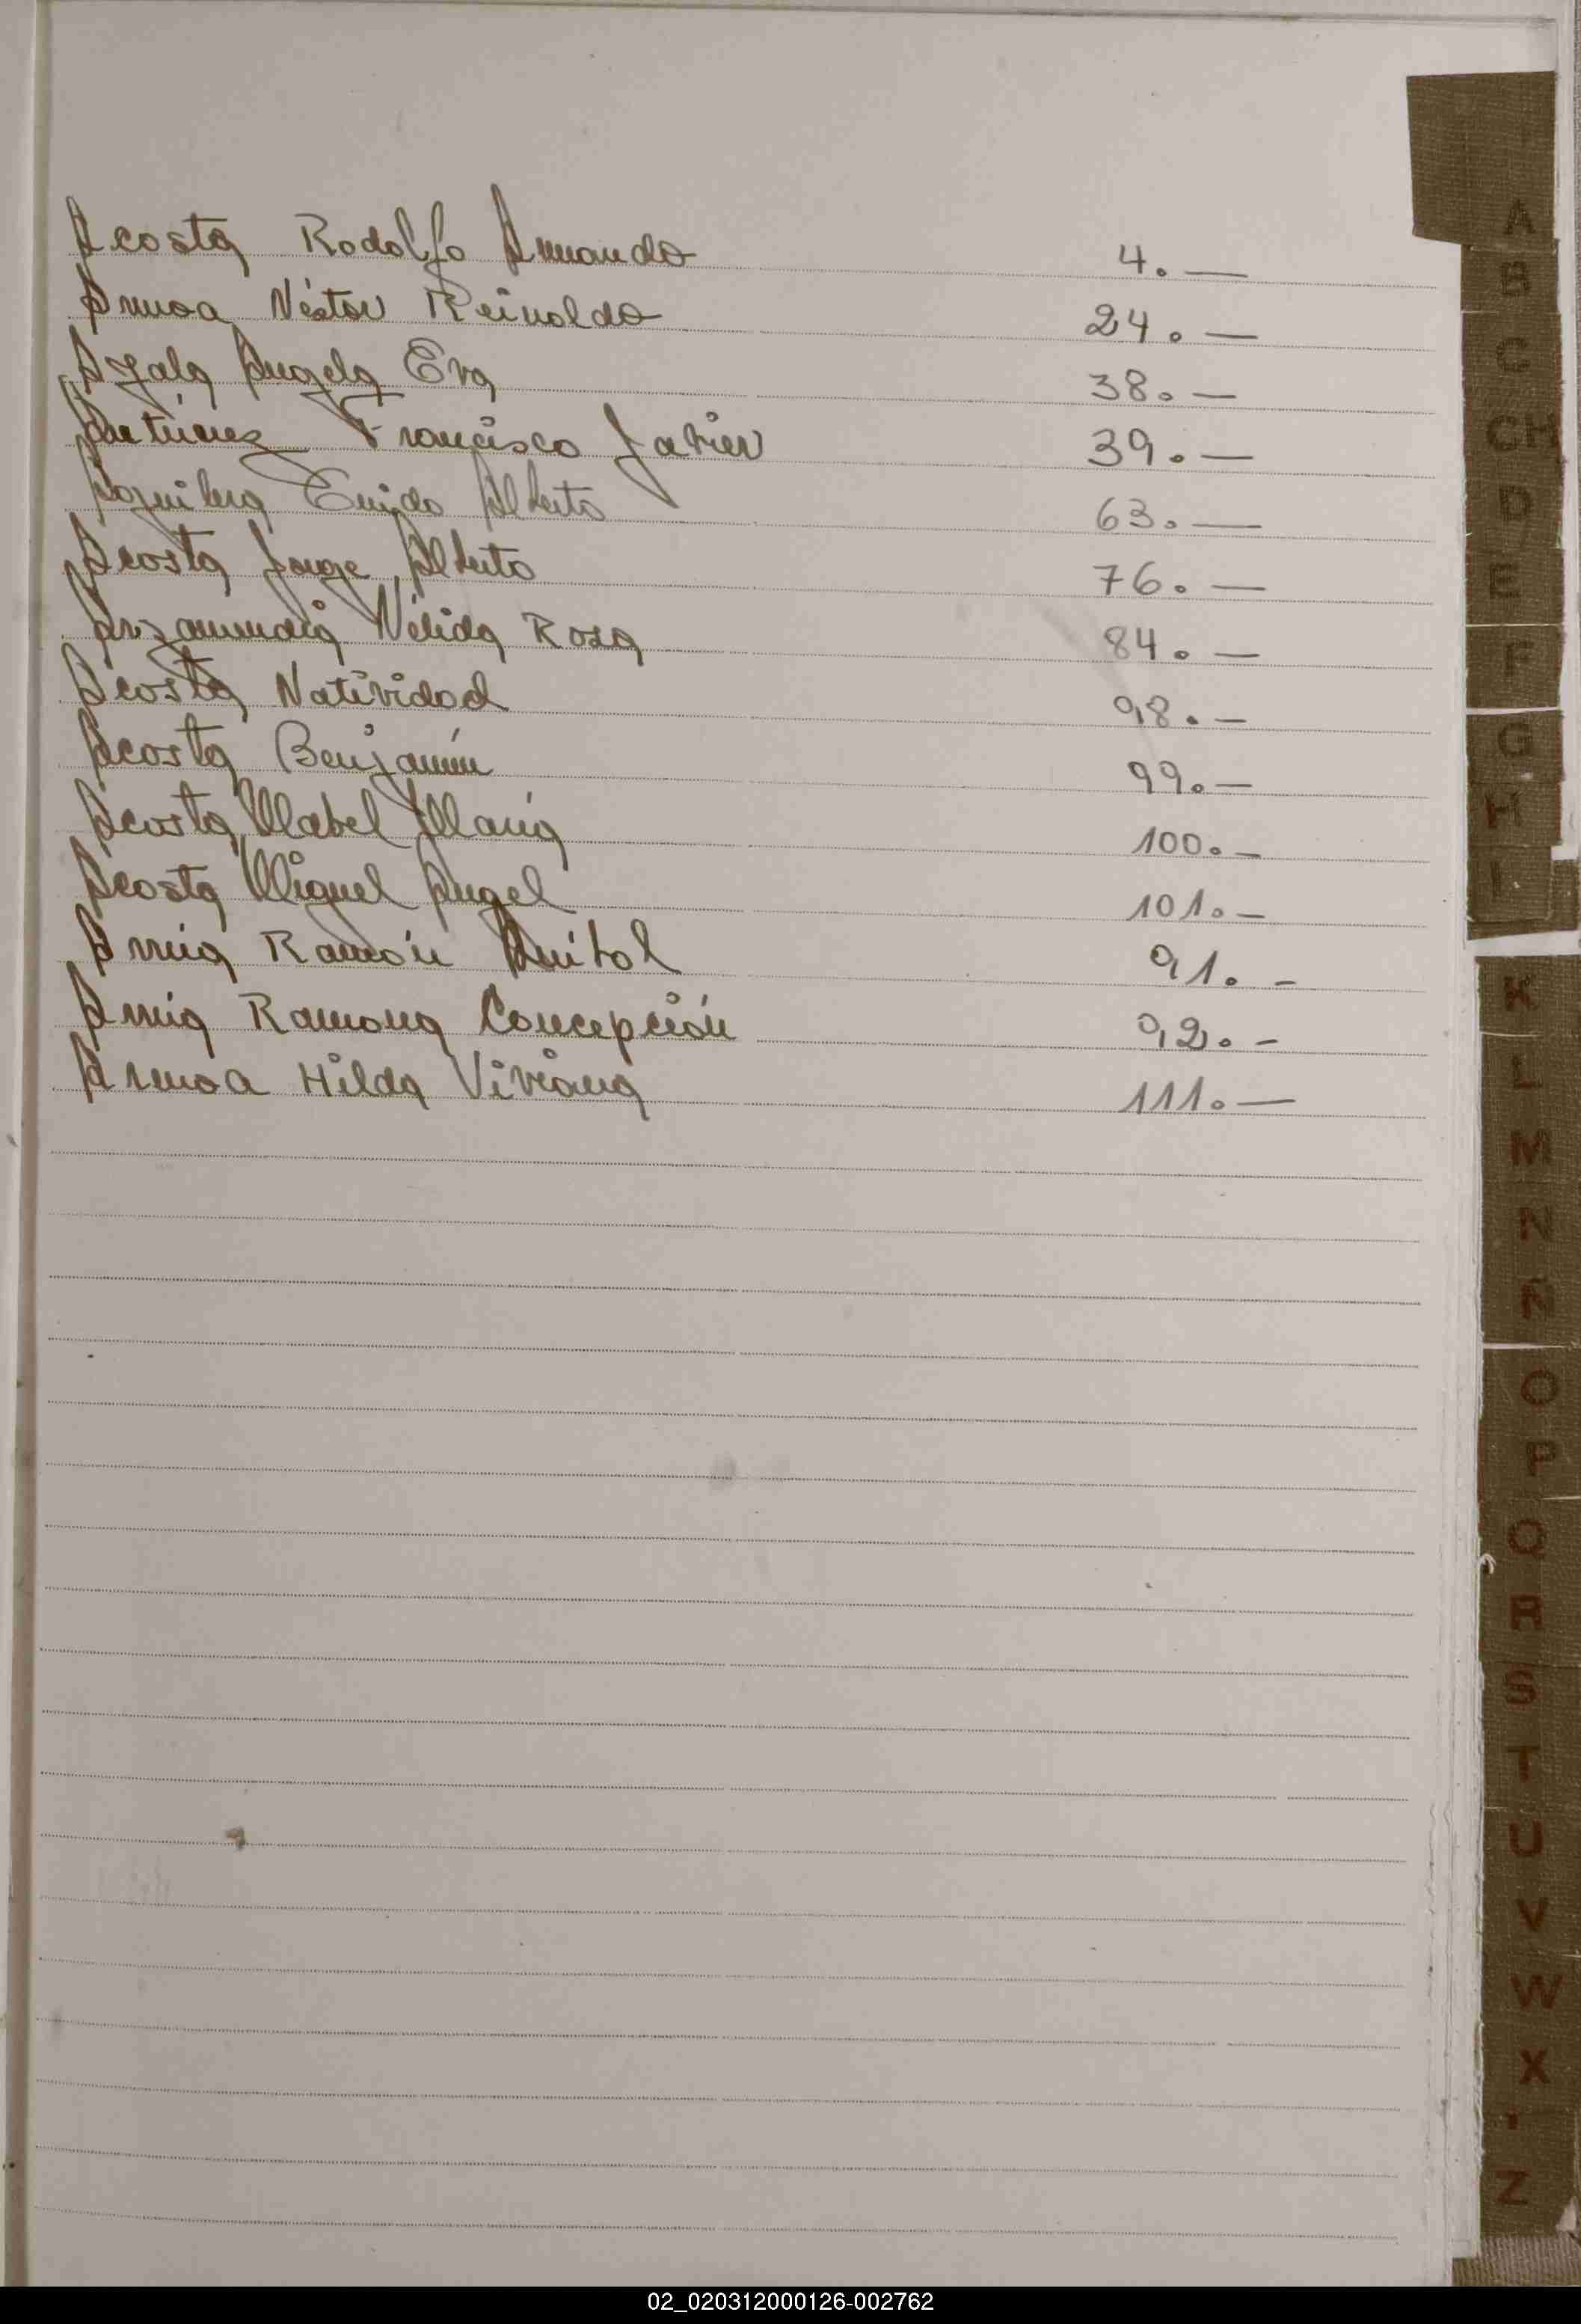 Acosta Rodolfo Armando 4.—
Armoa Néstor Reinaldo 24.—
Ayala Angela Eva 38.—
Antúnez Francisco Javier 39.—
Aguilera Alberto 63.—
Acosta Jorge Alberto 76.—
Arzamendia Nélida Rosa 84.—
Acosta Natividad 98.—
Acosta Benjamín 99.—
Acosta Mabel María 100.—
Acosta Miguel Angel 101.—
Ramón Anibal 91.-
Ramona Concepción 92.-
Armoa Hilda Viviana 111.—
A
B
C
CH
D
E
F
G
H
I
K
L
M
N
Ñ
O
P
Q
R
S
T
U
V
W
X
Z
02_020312000126-002762